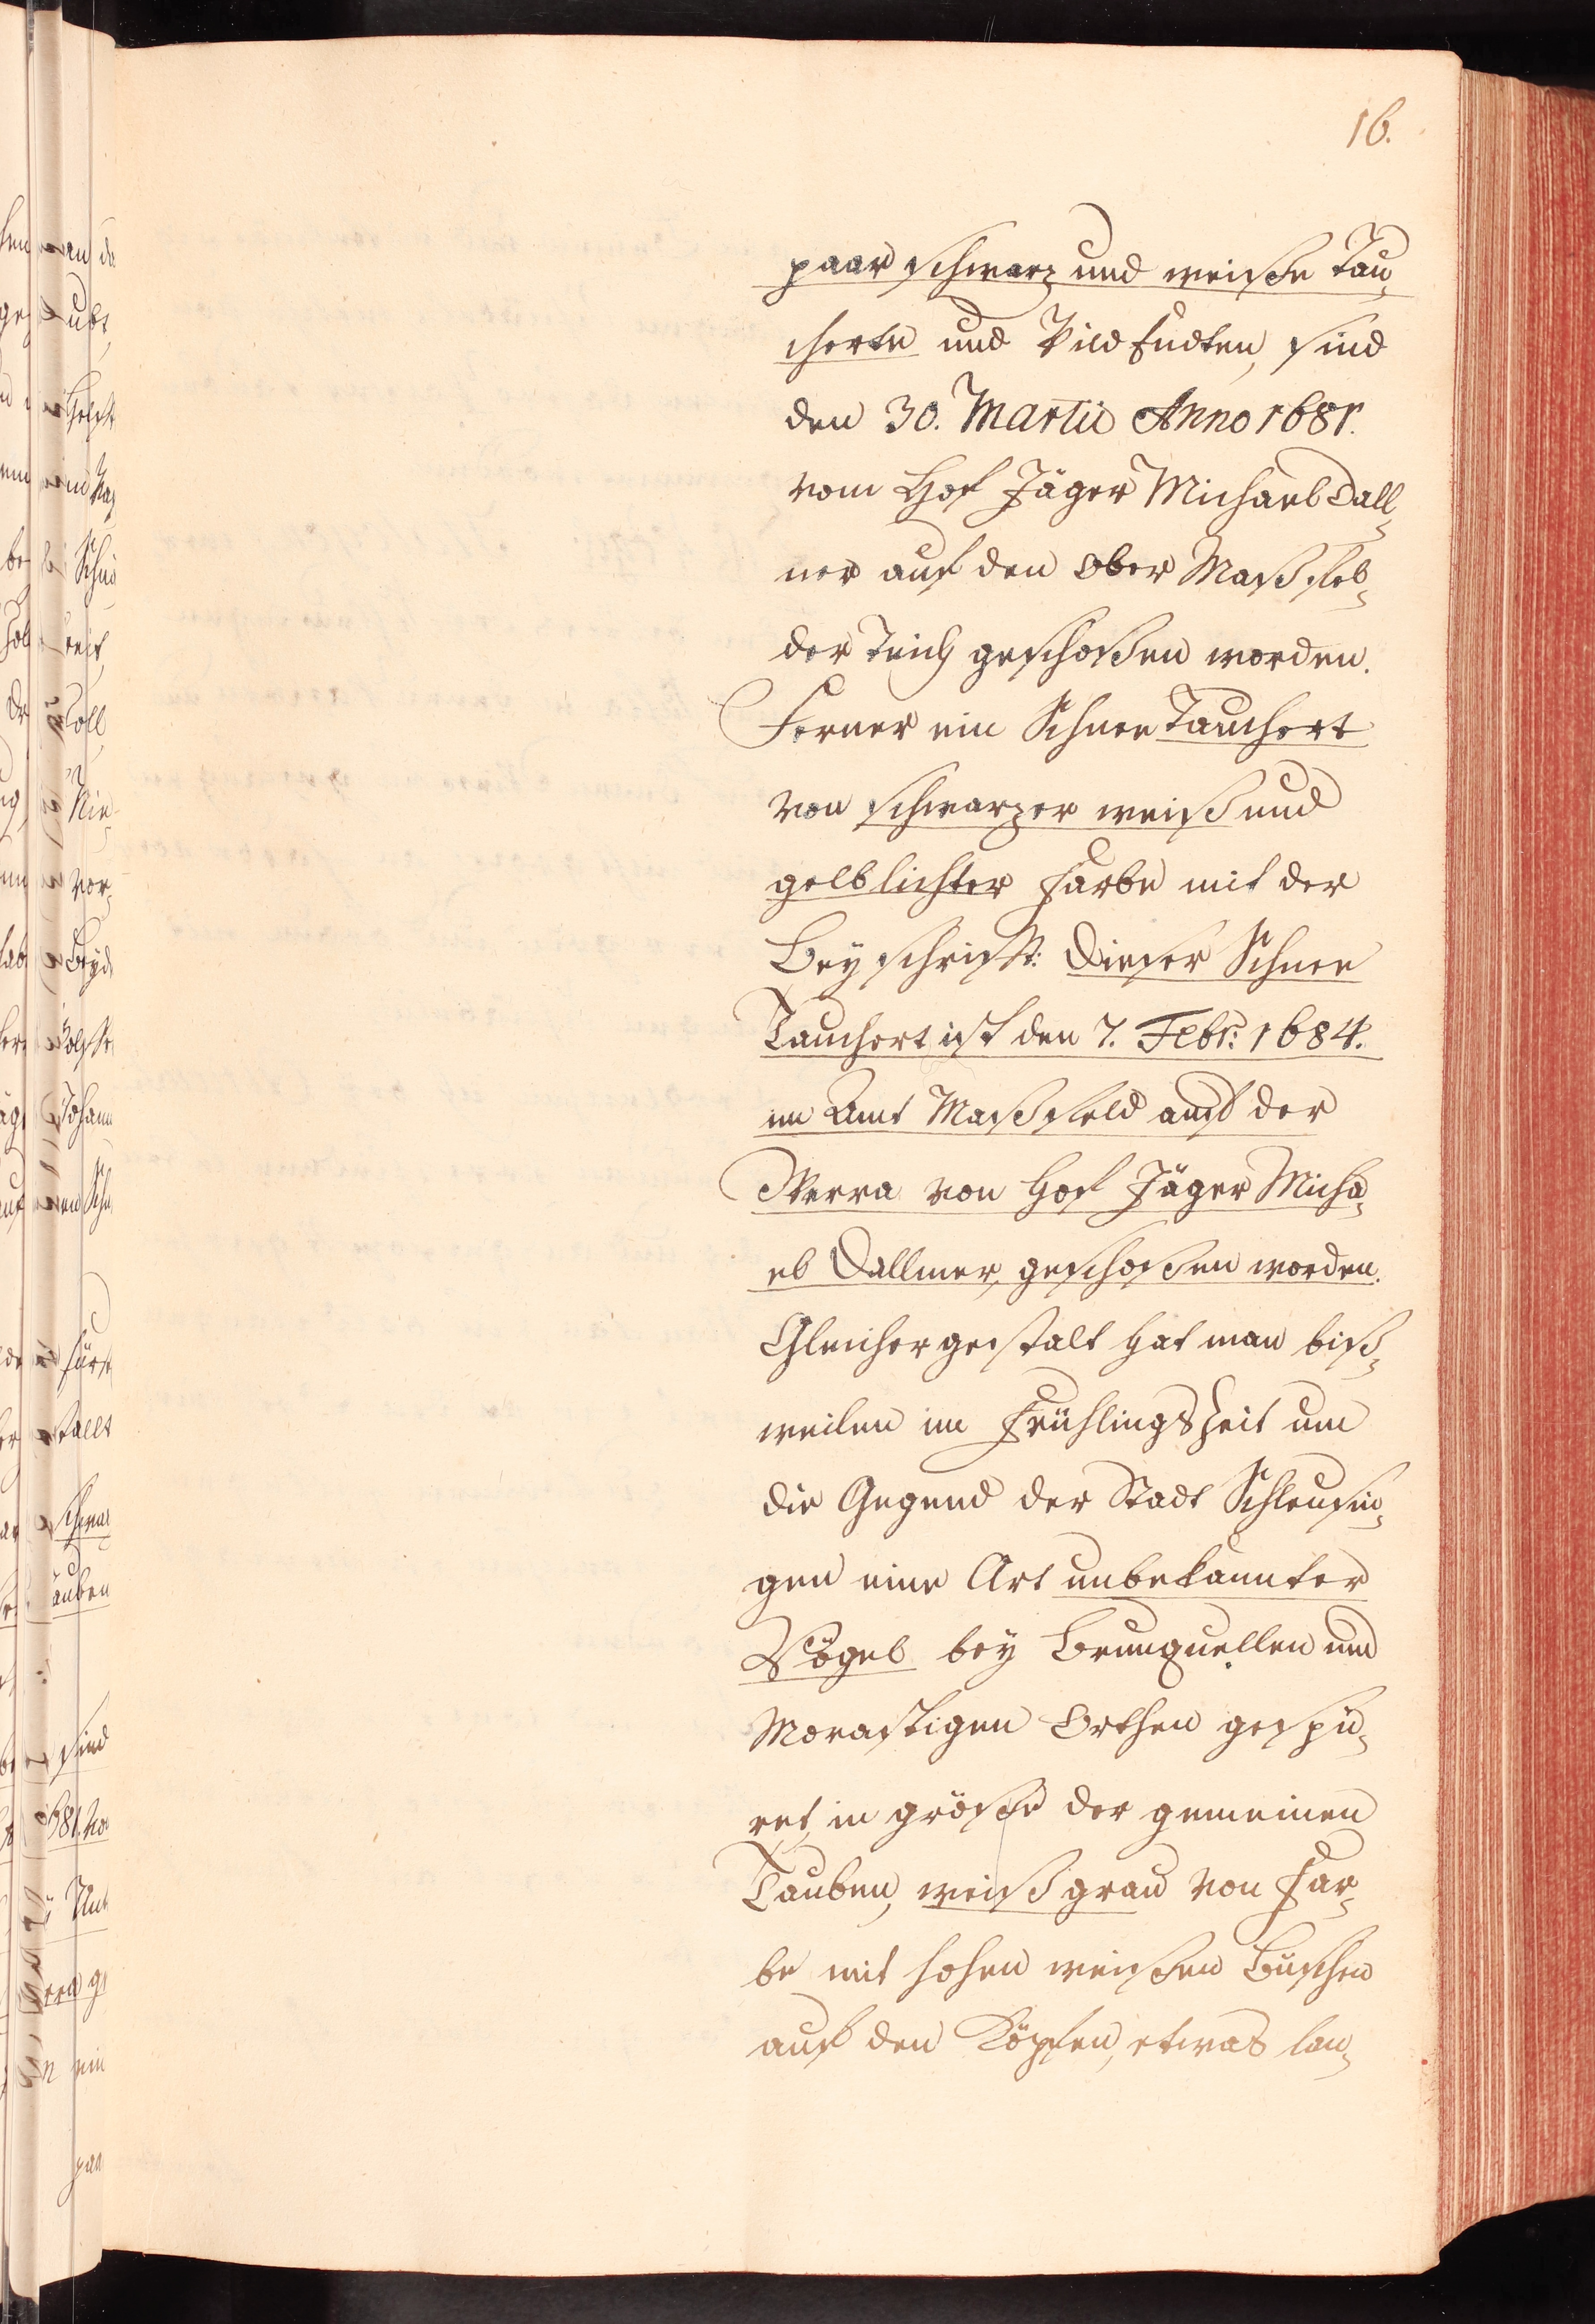 16.
paar schwarz und weiße Tau¬
cherte und Wild Endten, sind
den 30. Martii Anno 1681.
vom Hof Jäger Michael Dall¬
ner auf den Ober Maßfel¬
der Teich geschoßen worden.
Ferner ein Schnee Tauchert
von schwarzer weiß und
gelblichter Farbe mit der
Beyschrifft: Dieser Schnee
Tauchert ist den 7. Febr: 1684.
im Amt Maßfeld auf der
Werra von Hof Jäger Micha¬
el Dallmer, geschoßen worden.
Gleichergestalt hat man biß¬
weilen im Frühlings Zeit um
die Gegend der Stadt Schleusin¬
gen eine Art unbekannter
Vögel bey Brunquellen und
Morastigen Orthen gespü¬
ret, in größe der gemeinen
Tauben, weißgrau von Far¬
be mit hohen weißen Büschen
auf den Köpfen, etwas lan¬